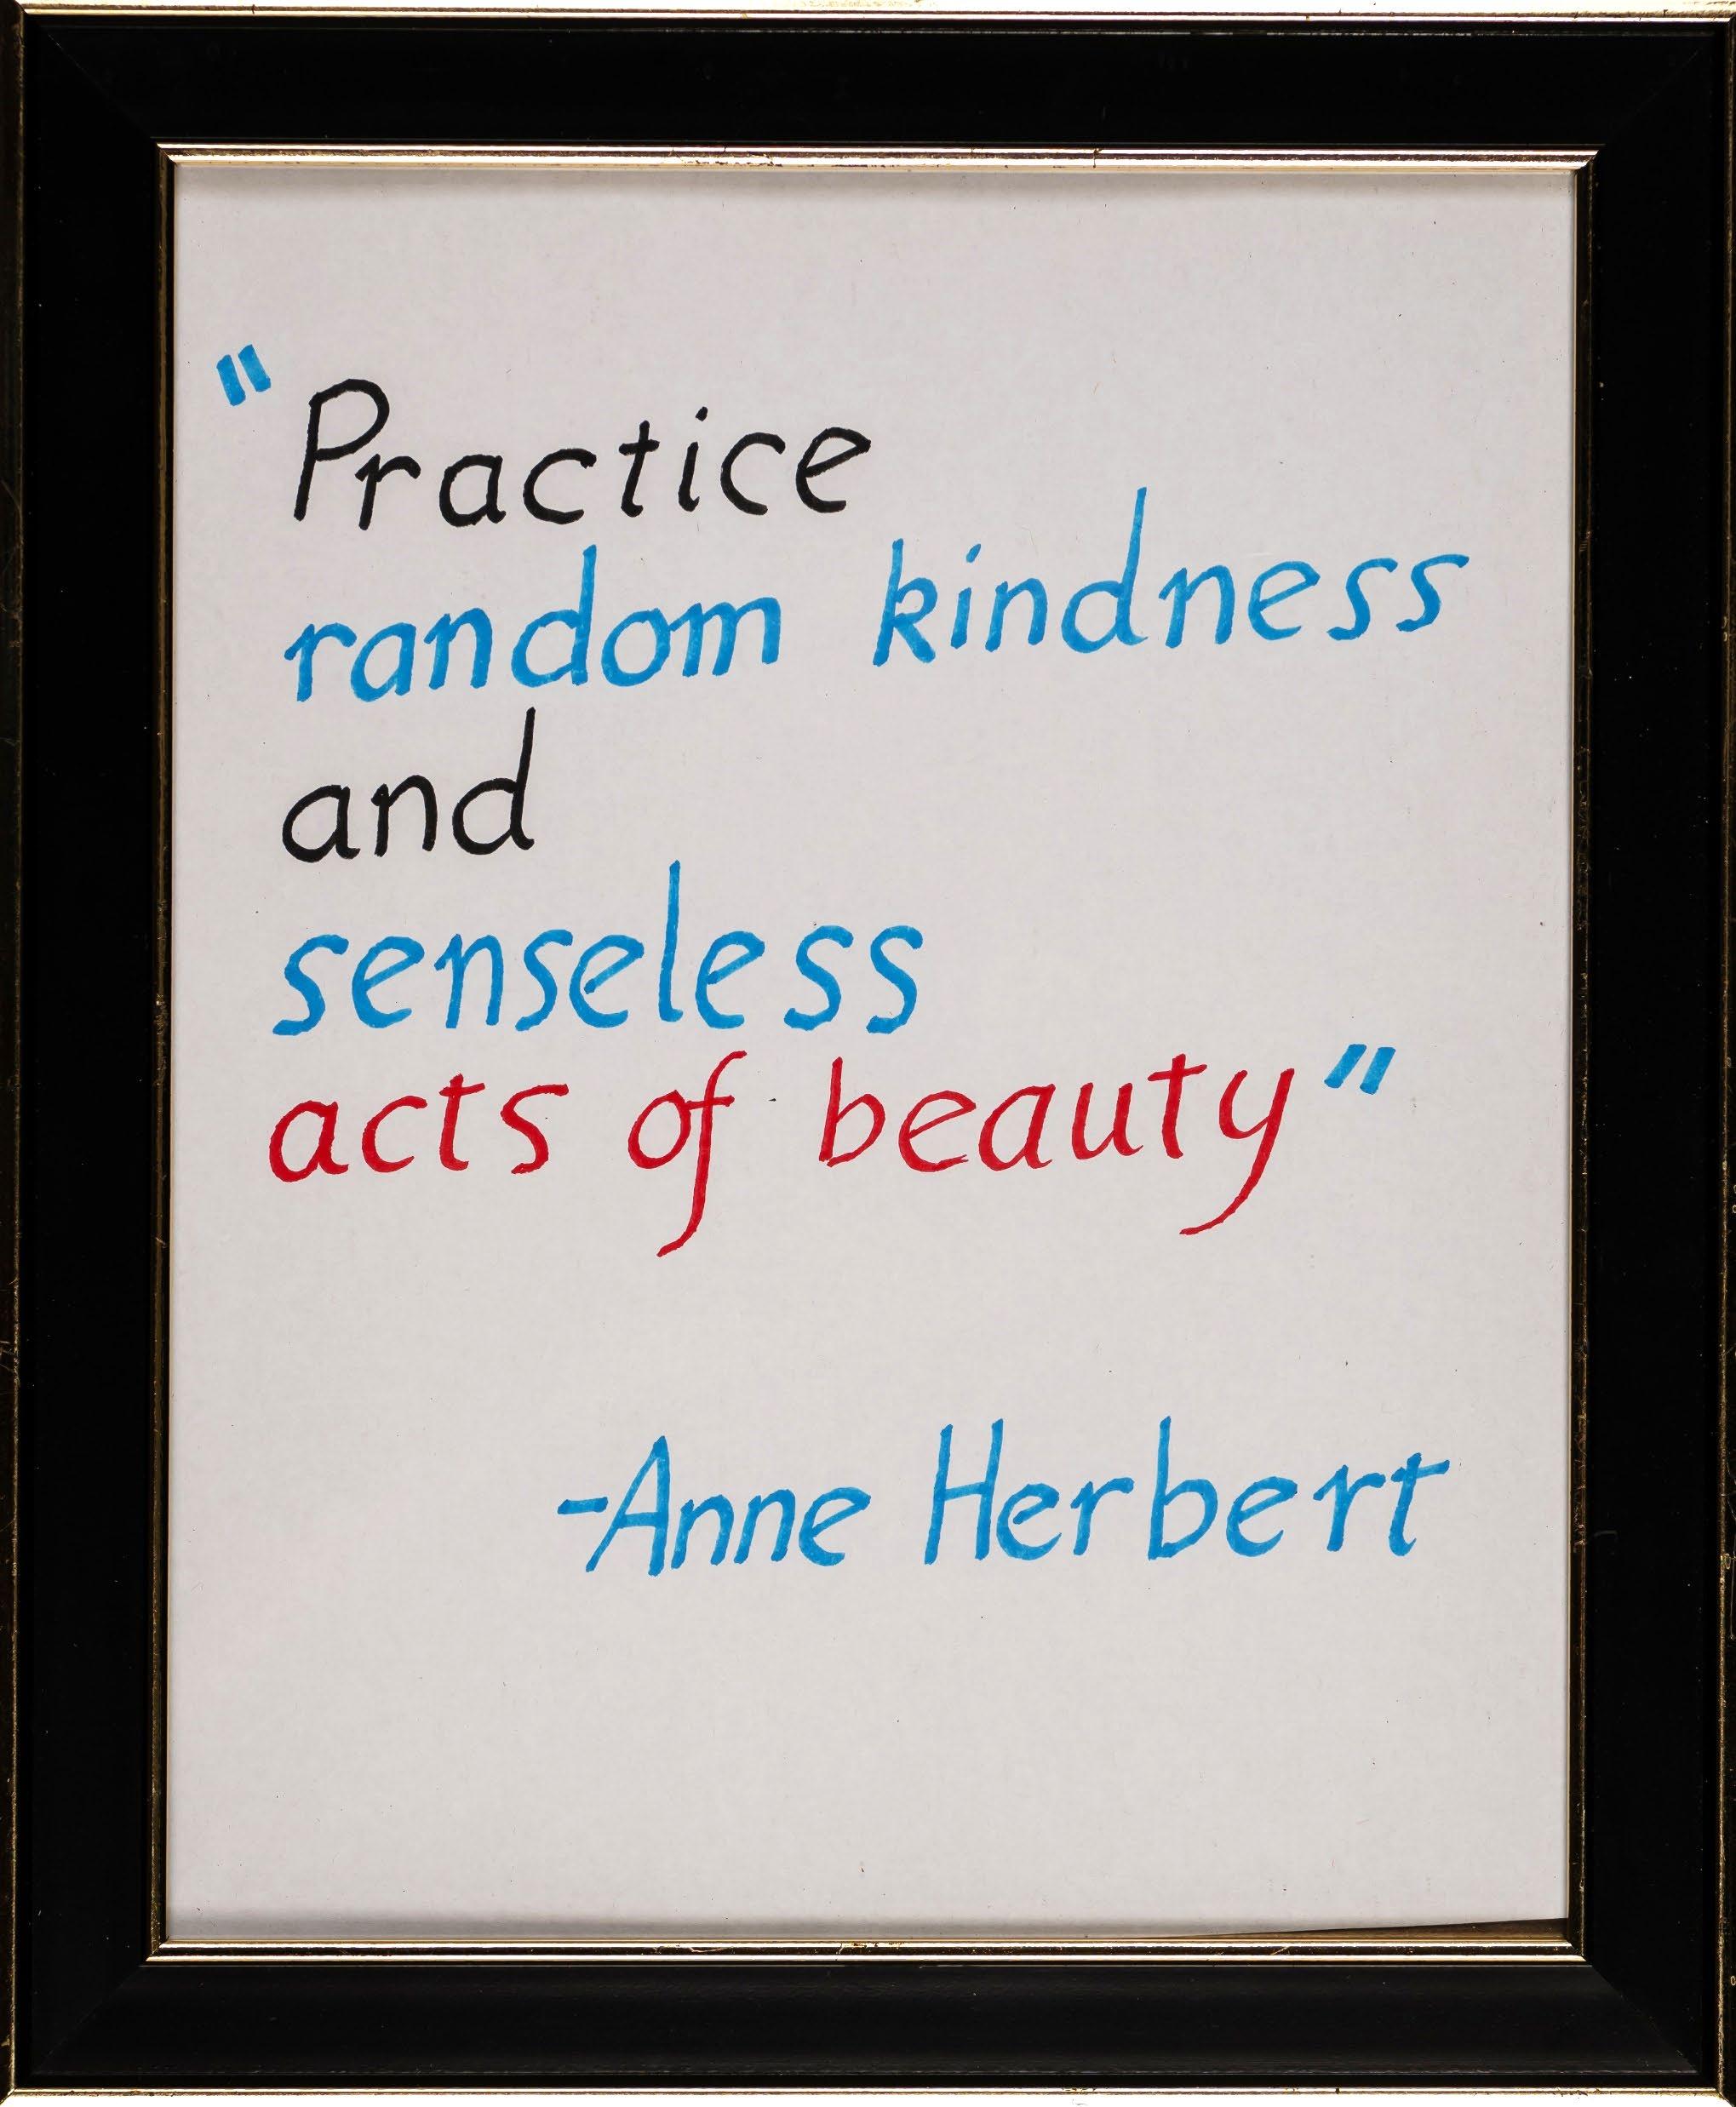 "Practice
random kindness
and
senseless
acts of beauty"
-Anne Herbert